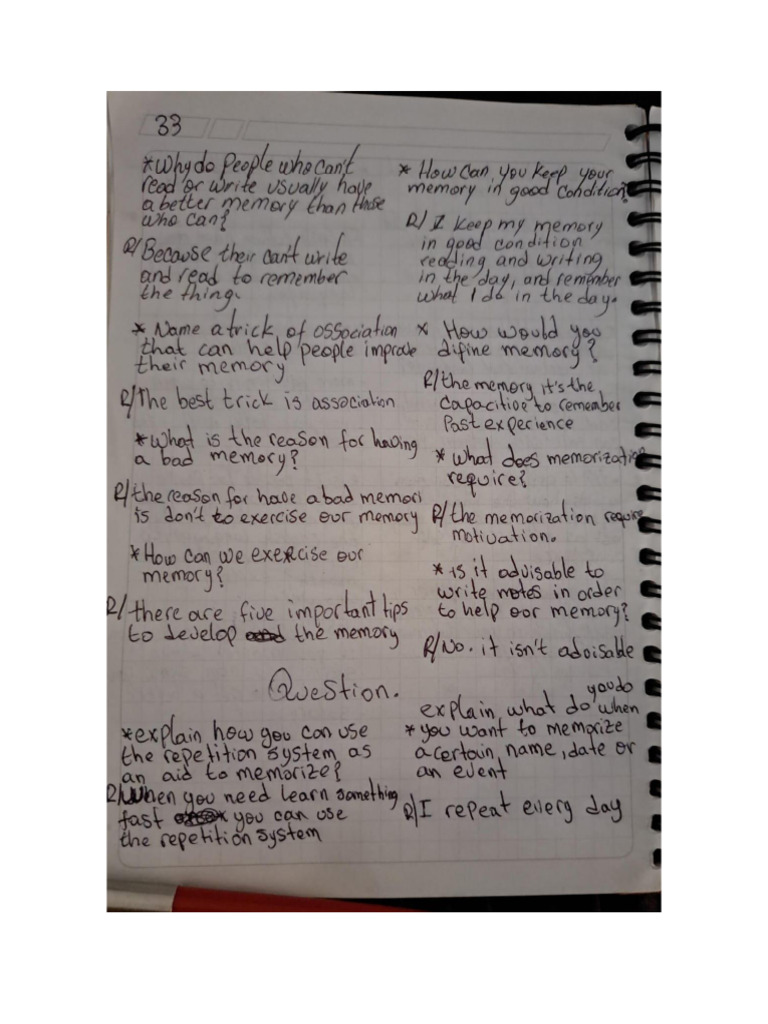 33
*Why do People who can't
read or write usually have
a better memory than those
who can?
R/ Because their can't write
and read to remember
the thing.
* Name a trick of ossociation
that can help people improve
their memory
R/ The best trick is association
*What is the reason for having
a bad memory?
R/ the reason for have a bad memori
is don't to exercise our memory
*How can we exercise our
memory?
R/ there are five important tips
to develop the memory
* How can you keep your
memory in good condition?
R/ I keep my memory
in good condition
reading and writing
in the day, and remember
what I do in the day.
* How would you
difine memory?
R/ the memory it's the
capacitive to remember
Past experience
* What does memorization
require?
R/ the memorization require
motivation.
* is it advisable to
write notes in order
to help our memory?
R/ No. it isn't advisable
Question.
*explain how you can use
the repetition system as
an aid to memorize?
R/ When you need learn something
fast you can use
the repetition system
you do
explain what do when
* you want to memorize
a certain name, date or
an event
R/ I repeat every day